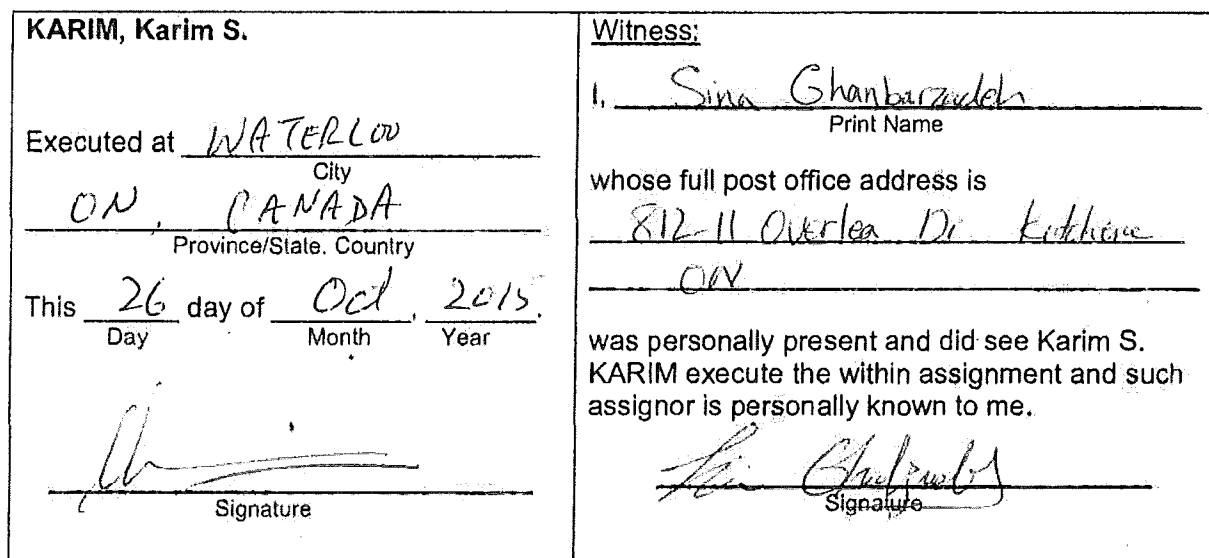 KARIM, Karim S.
Executed at WATERLOO
City
ON, CANADA
Province/State, Country
This 26 day of Oct, 2015.
Day Month Year
Signature
Witness:
I, Sina Ghanbarzadeh
Print Name
whose full post office address is
812-11 Overlea Dr
ON
was personally present and did see Karim S.
KARIM execute the within assignment and such
assignor is personally known to me.
Signature